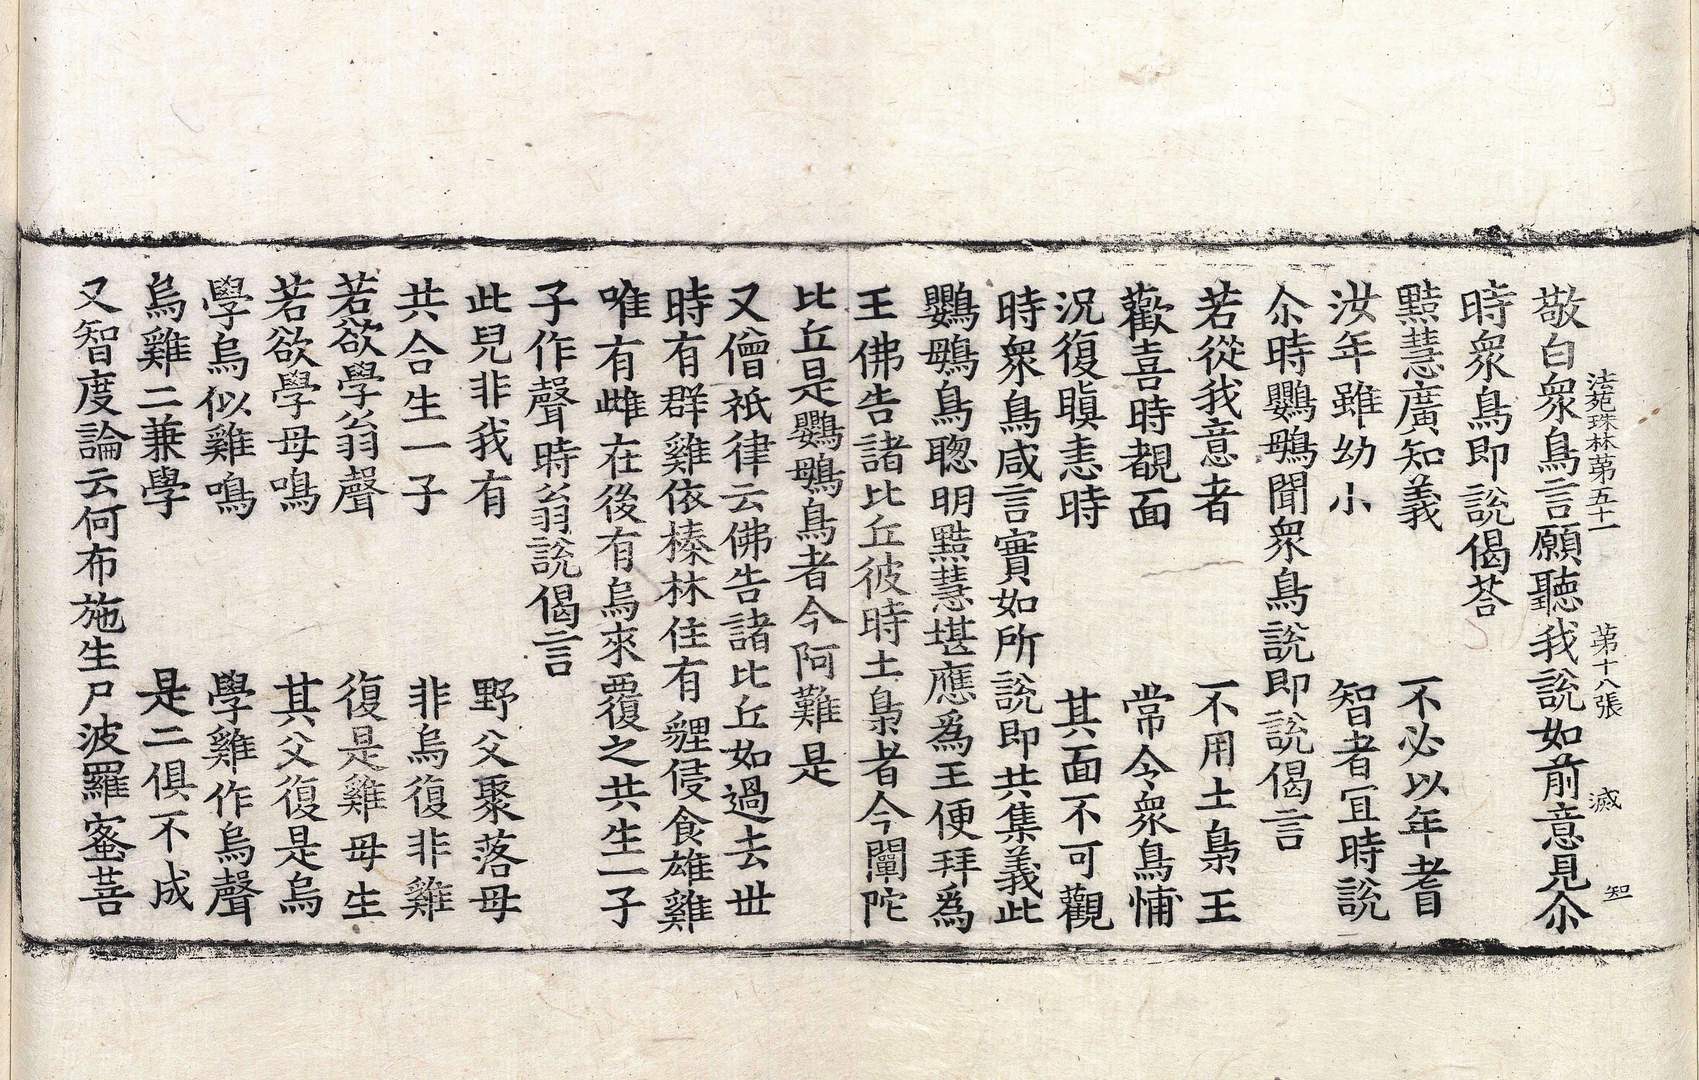 法苑珠林第五十一 第十八張 滅 知
敬白衆鳥言願聽我說如前意見尒
時衆鳥即說偈荅
黠慧廣知義 不必以年耆
汝年雖幼小 智者冝時說
尒時鸚鵡聞衆鳥說即說偈言
若從我意者 不用土梟王
歡喜時覩面 常令衆鳥怖
況復瞋恚時 其面不可觀
時衆鳥咸言實如所說即共集義此
鸚鵡鳥聰明黠慧堪應爲王便拜爲
王佛告諸比丘彼時土梟者今闡陀
比丘是鸚鵡鳥者今阿難是
又僧祇律云佛告諸比丘如過去世
時有群雞依榛林住有貍侵食雄雞
唯有雌在後有烏來覆之共生一子
子作聲時翁說偈言
此兒非我有 野父聚落母
共合生一子 非烏復非雞
若欲學翁聲 復是雞母生
若欲學母鳴 其父復是烏
學烏似雞鳴 學雞作烏聲
烏雞二兼學 是二俱不成
又智度論云何布施生尸波羅蜜菩